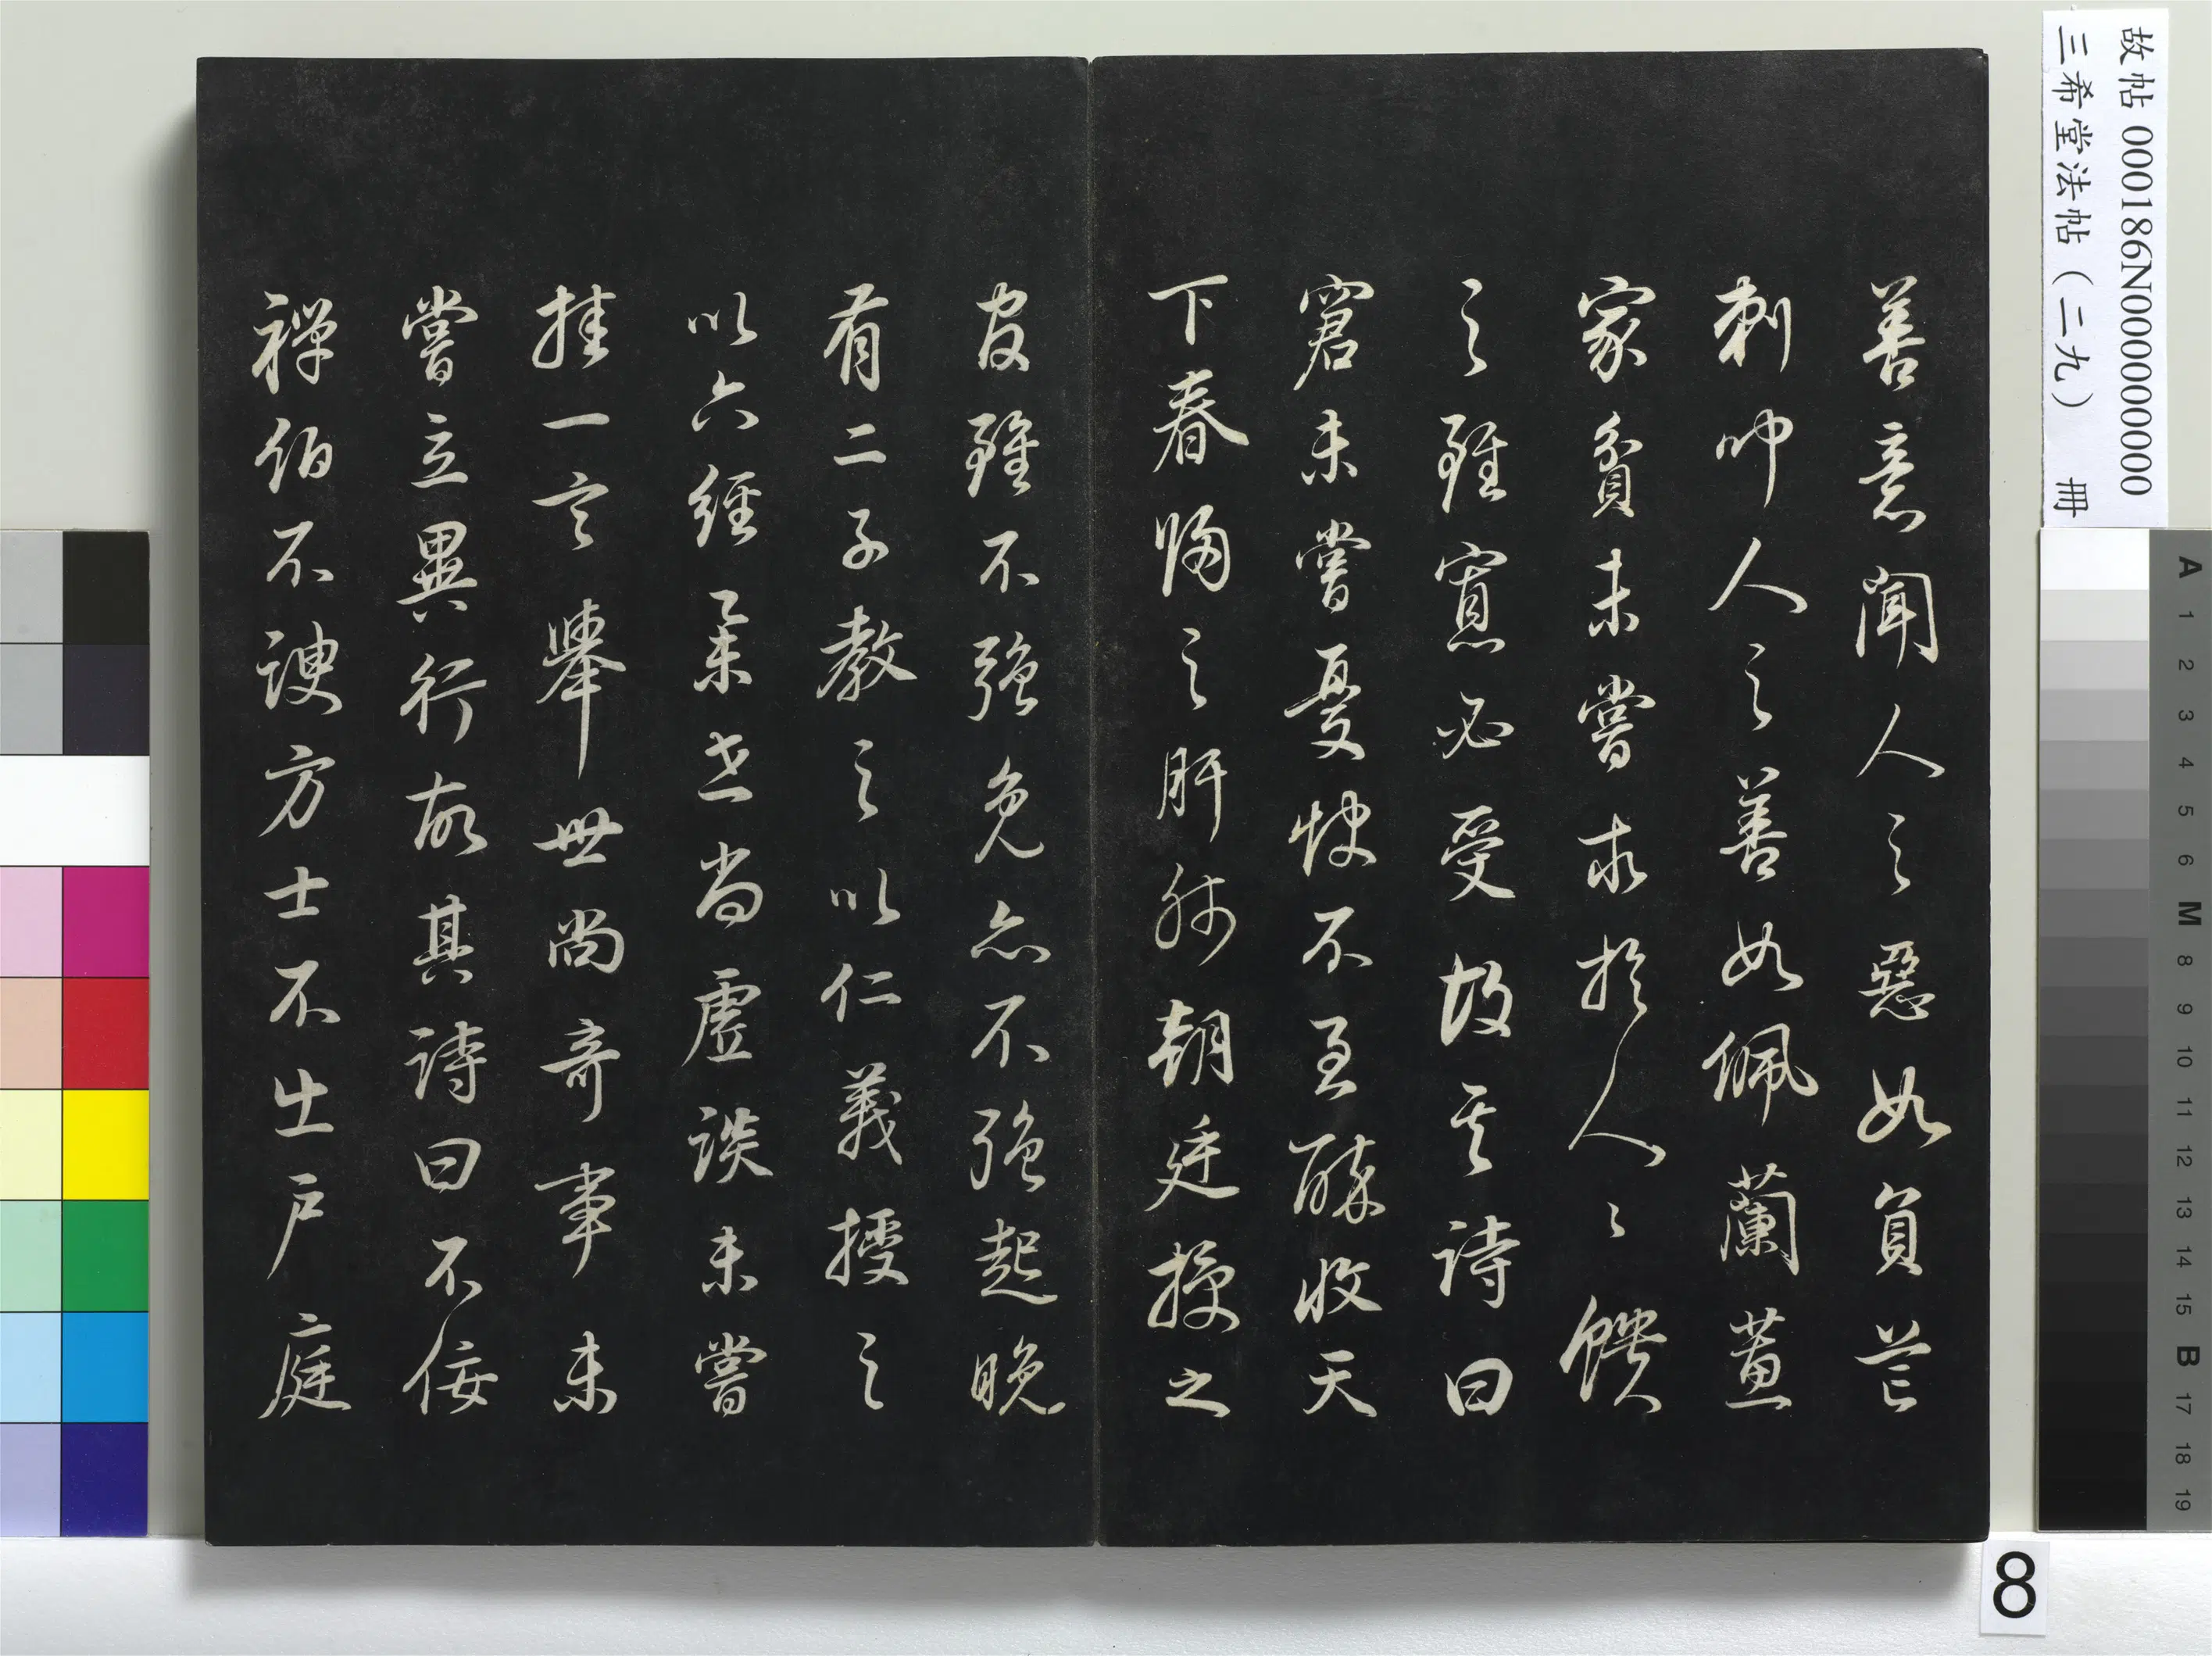 善意聞人之惡如負芒
刺聞人之善如佩蘭蕙
家貧未嘗求於人〻饋
之雖寡必受故其詩曰
窘未嘗憂飲不至醉收天
下春歸之肝肺朝廷授之
官雖不強免亦不強起晚
有二子教之以仁義授之
以六經舉世尚虛談未嘗
挂一言舉世尚奇事未
嘗立異行故其詩曰不佞
禪伯不諛方士不出戶庭
故帖 000186N000000000
三希堂法帖（二九） 冊
A 1 2 3 4 5 6 M 8 9 10 11 12 13 14 15 B 17 18 19
8